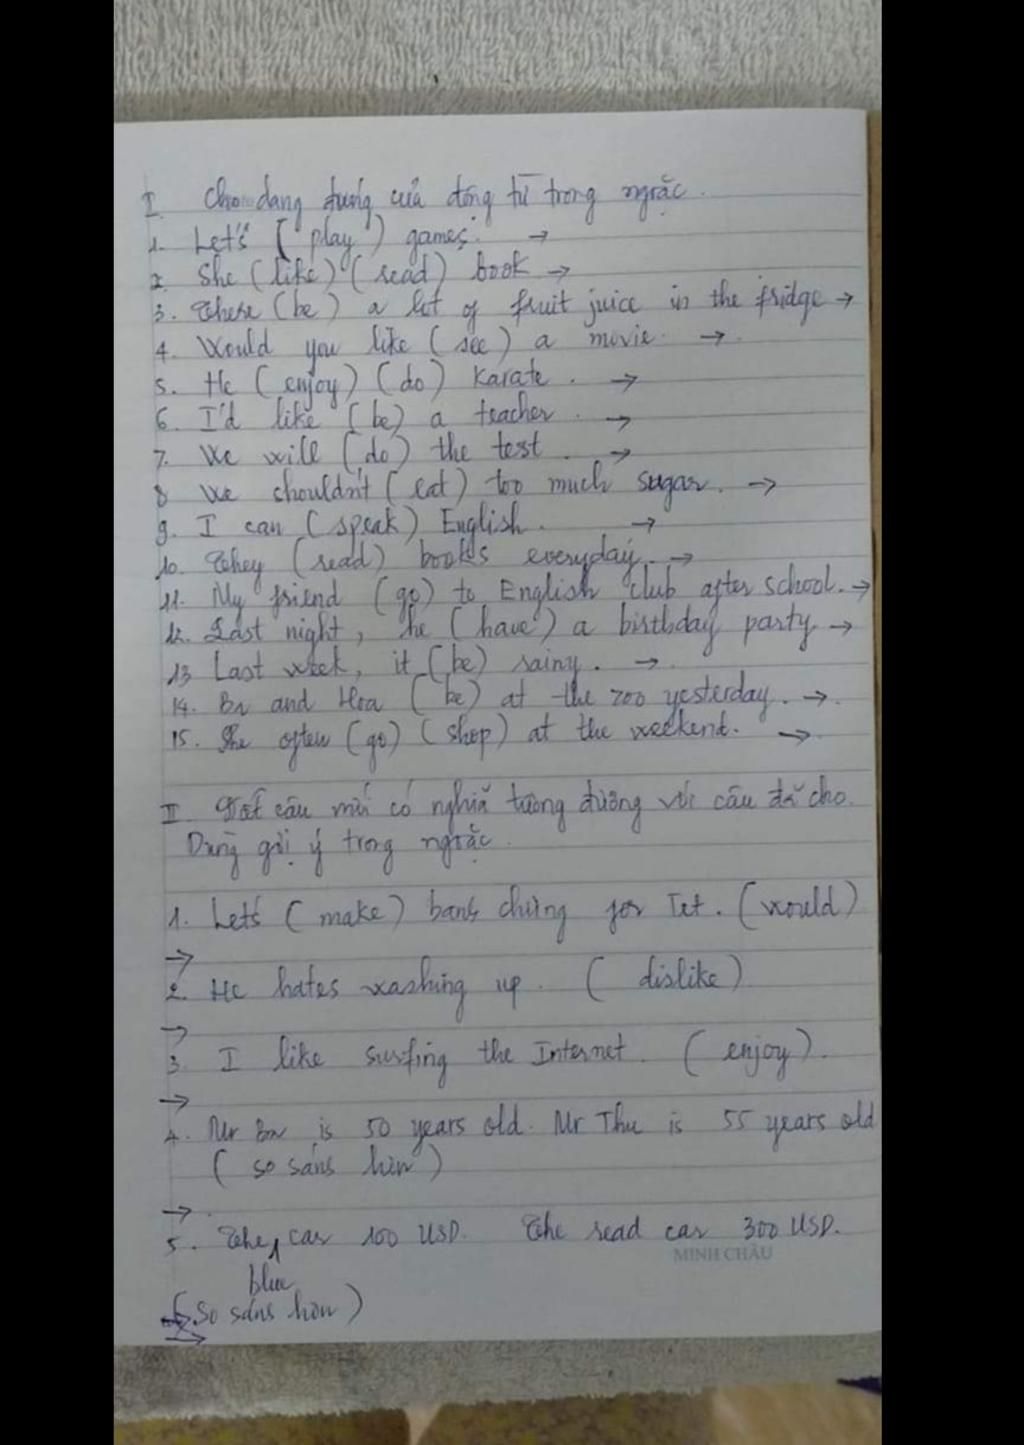 I. Cho dạng đúng của động từ trong ngoặc.
1. Let's (play) games. →
2. She (like) (read) book →
3. There (be) a lot of fruit juice in the fridge →
4. Would you like (see) a movie. →
5. He (enjoy) (do) Karate. →
6. I'd like (be) a teacher. →
7. We will (do) the test. →
8 We shouldn't (eat) too much sugar. →
9. I can (speak) English. →
10. They (read) books everyday. →
11. My friend (go) to English club after school. →
12. Last night, he (have) a birthday party →
13 Last week, it (be) rainy. →
14. Ba and Hoa (be) at the zoo yesterday. →
15. She often (go) (shop) at the weekend. →
II Đặt câu mới có nghĩa tương đương với câu đã cho.
Dùng gợi ý trong ngoặc.
1. Let's (make) banh chưng for Tet. (would)
→
2. He hates washing up. (dislike)
→
3. I like surfing the Internet. (enjoy).
→
4. Mr Ba is 50 years old. Mr Thu is 55 years old
(so sánh hơn)
→
5. The blue car 100 USD. The read car 300 USD.
MINH CHÂU
(so sánh hơn)
→